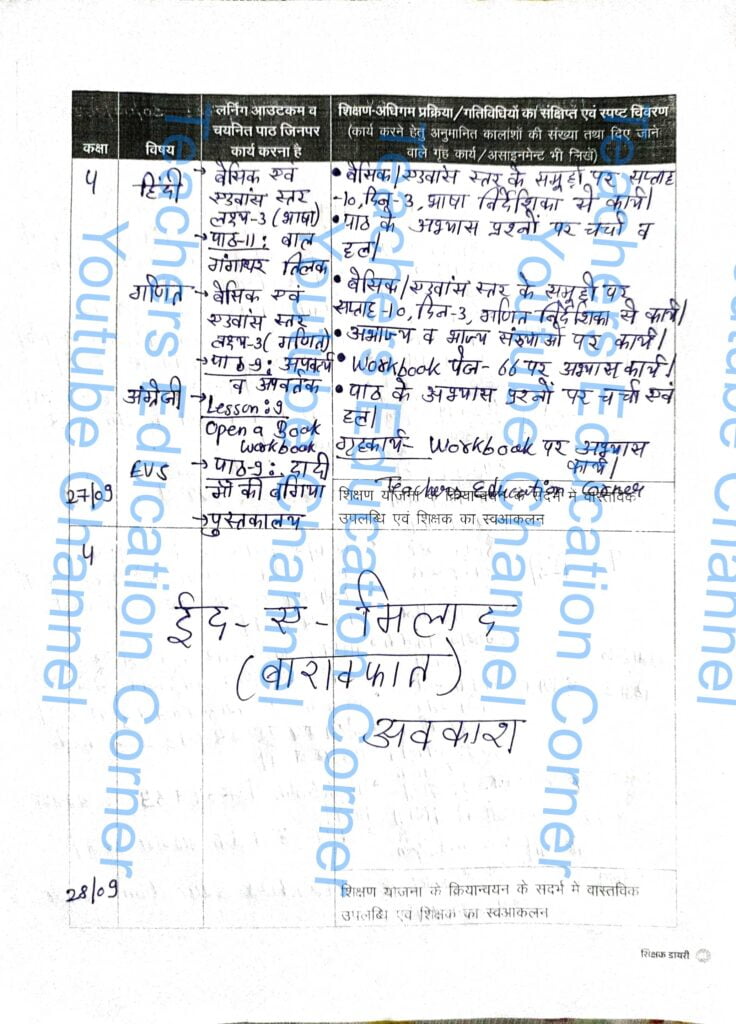 कक्षा
विषय
लर्निंग आउटकम व
चयनित पाठ जिनपर
कार्य करना है
शिक्षण-अधिगम प्रक्रिया/गतिविधियों का संक्षिप्त एवं स्पष्ट विवरण
(कार्य करने हेतु अनुमानित कालांशों की संख्या तथा दिए जाने
वाले गृह कार्य/असाइनमेंट भी लिखें)
4
हिंदी
→ बेसिक एवं
एडवांस स्तर
लक्ष्य-3 (भाषा)
→ पाठ-11: बाल
गंगाधर तिलक
• बेसिक/एडवांस स्तर के समूहों पर सप्ताह
-10, दिन-3, भाषा निर्देशिका से कार्य।
• पाठ के अभ्यास प्रश्नों पर चर्चा व
हल।
गणित
→ बेसिक एवं
एडवांस स्तर
लक्ष्य-3 (गणित)
→ पाठ-9: अपवर्त्य
व अपवर्तक
• बेसिक/एडवांस स्तर के समूहों पर
सप्ताह-10, दिन-3, गणित निर्देशिका से कार्य।
• अभाज्य व भाज्य संख्याओं पर कार्य।
• Workbook पेज-66 पर अभ्यास कार्य।
अंग्रेजी
→ Lesson: 9
Open a Book
Workbook
• पाठ के अभ्यास प्रश्नों पर चर्चा एवं
हल।
गृहकार्य- Workbook पर अभ्यास
कार्य।
EVS
→ पाठ-9: दादी
माँ की बगिया
→ पुस्तकालय
Teachers Education Corner
27/09
शिक्षण योजना के क्रियान्वयन के संदर्भ में वास्तविक
उपलब्धि एवं शिक्षक का स्वआकलन
4
ईद-ए-मिलाद
(बारावफात)
अवकाश
28/09
शिक्षण योजना के क्रियान्वयन के संदर्भ में वास्तविक
उपलब्धि एवं शिक्षक का स्वआकलन
शिक्षक डायरी
Teachers Education Corner
Youtube Channel
Teachers Education Corner
Youtube Channel
Teachers Education Corner
Youtube Channel